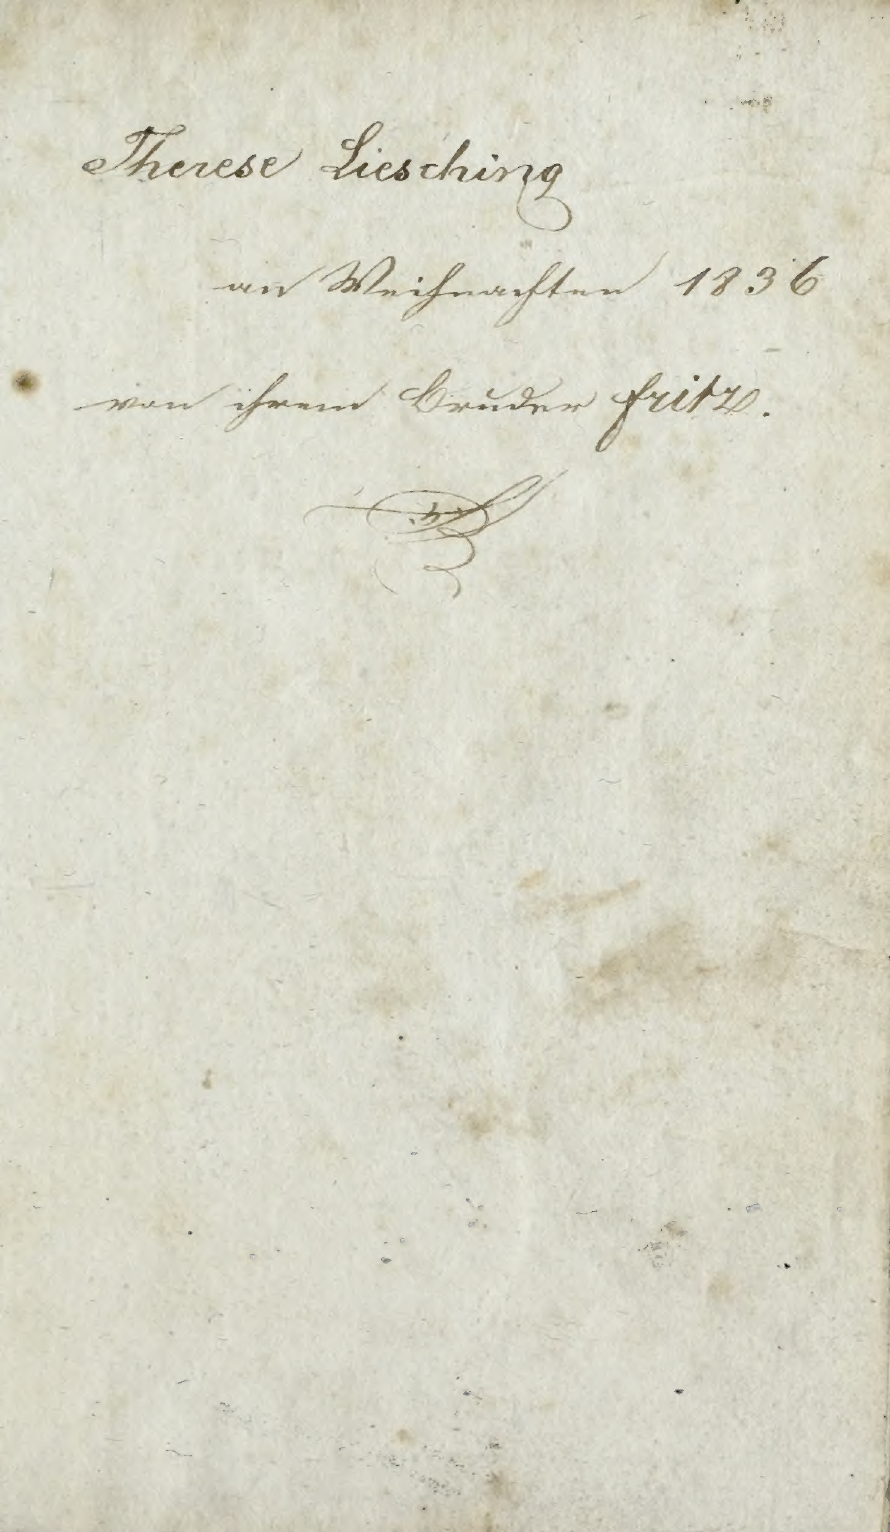 Therese Liesching
an Weihnachten 1836
von ihrem Bruder Fritz.